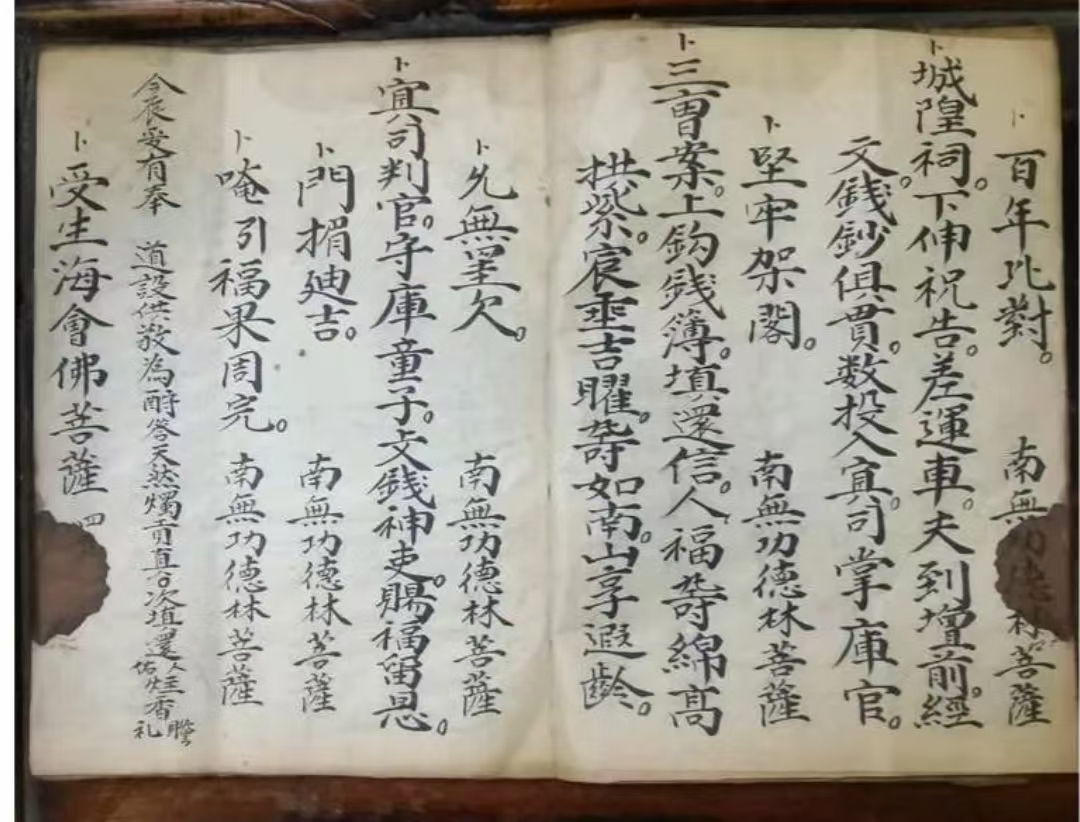 卜百年比對。 南無功德林菩薩
卜城隍祠。下伸祝告。差運車。夫到壇前。經
文錢鈔俱貫。数投入冥司掌庫官。
卜堅牢架閣。 南無功德林菩薩
卜三曹案。上鈎錢簿。填還信。人福夀綿高
拱紫。宸垂吉曜。夀如南。山享遐齡。
卜先無罣欠。 南無功德林菩薩
卜冥司判官。守庫童子。文錢神吏。賜福留恩。
卜門 廸吉。 南無功德林菩薩
卜唵引福果周完。 南無功德林菩薩
今辰受有奉 道設供敬為酧答天然燭貢真香次填還 人 炷香 禮
卜受生海會佛菩薩 四